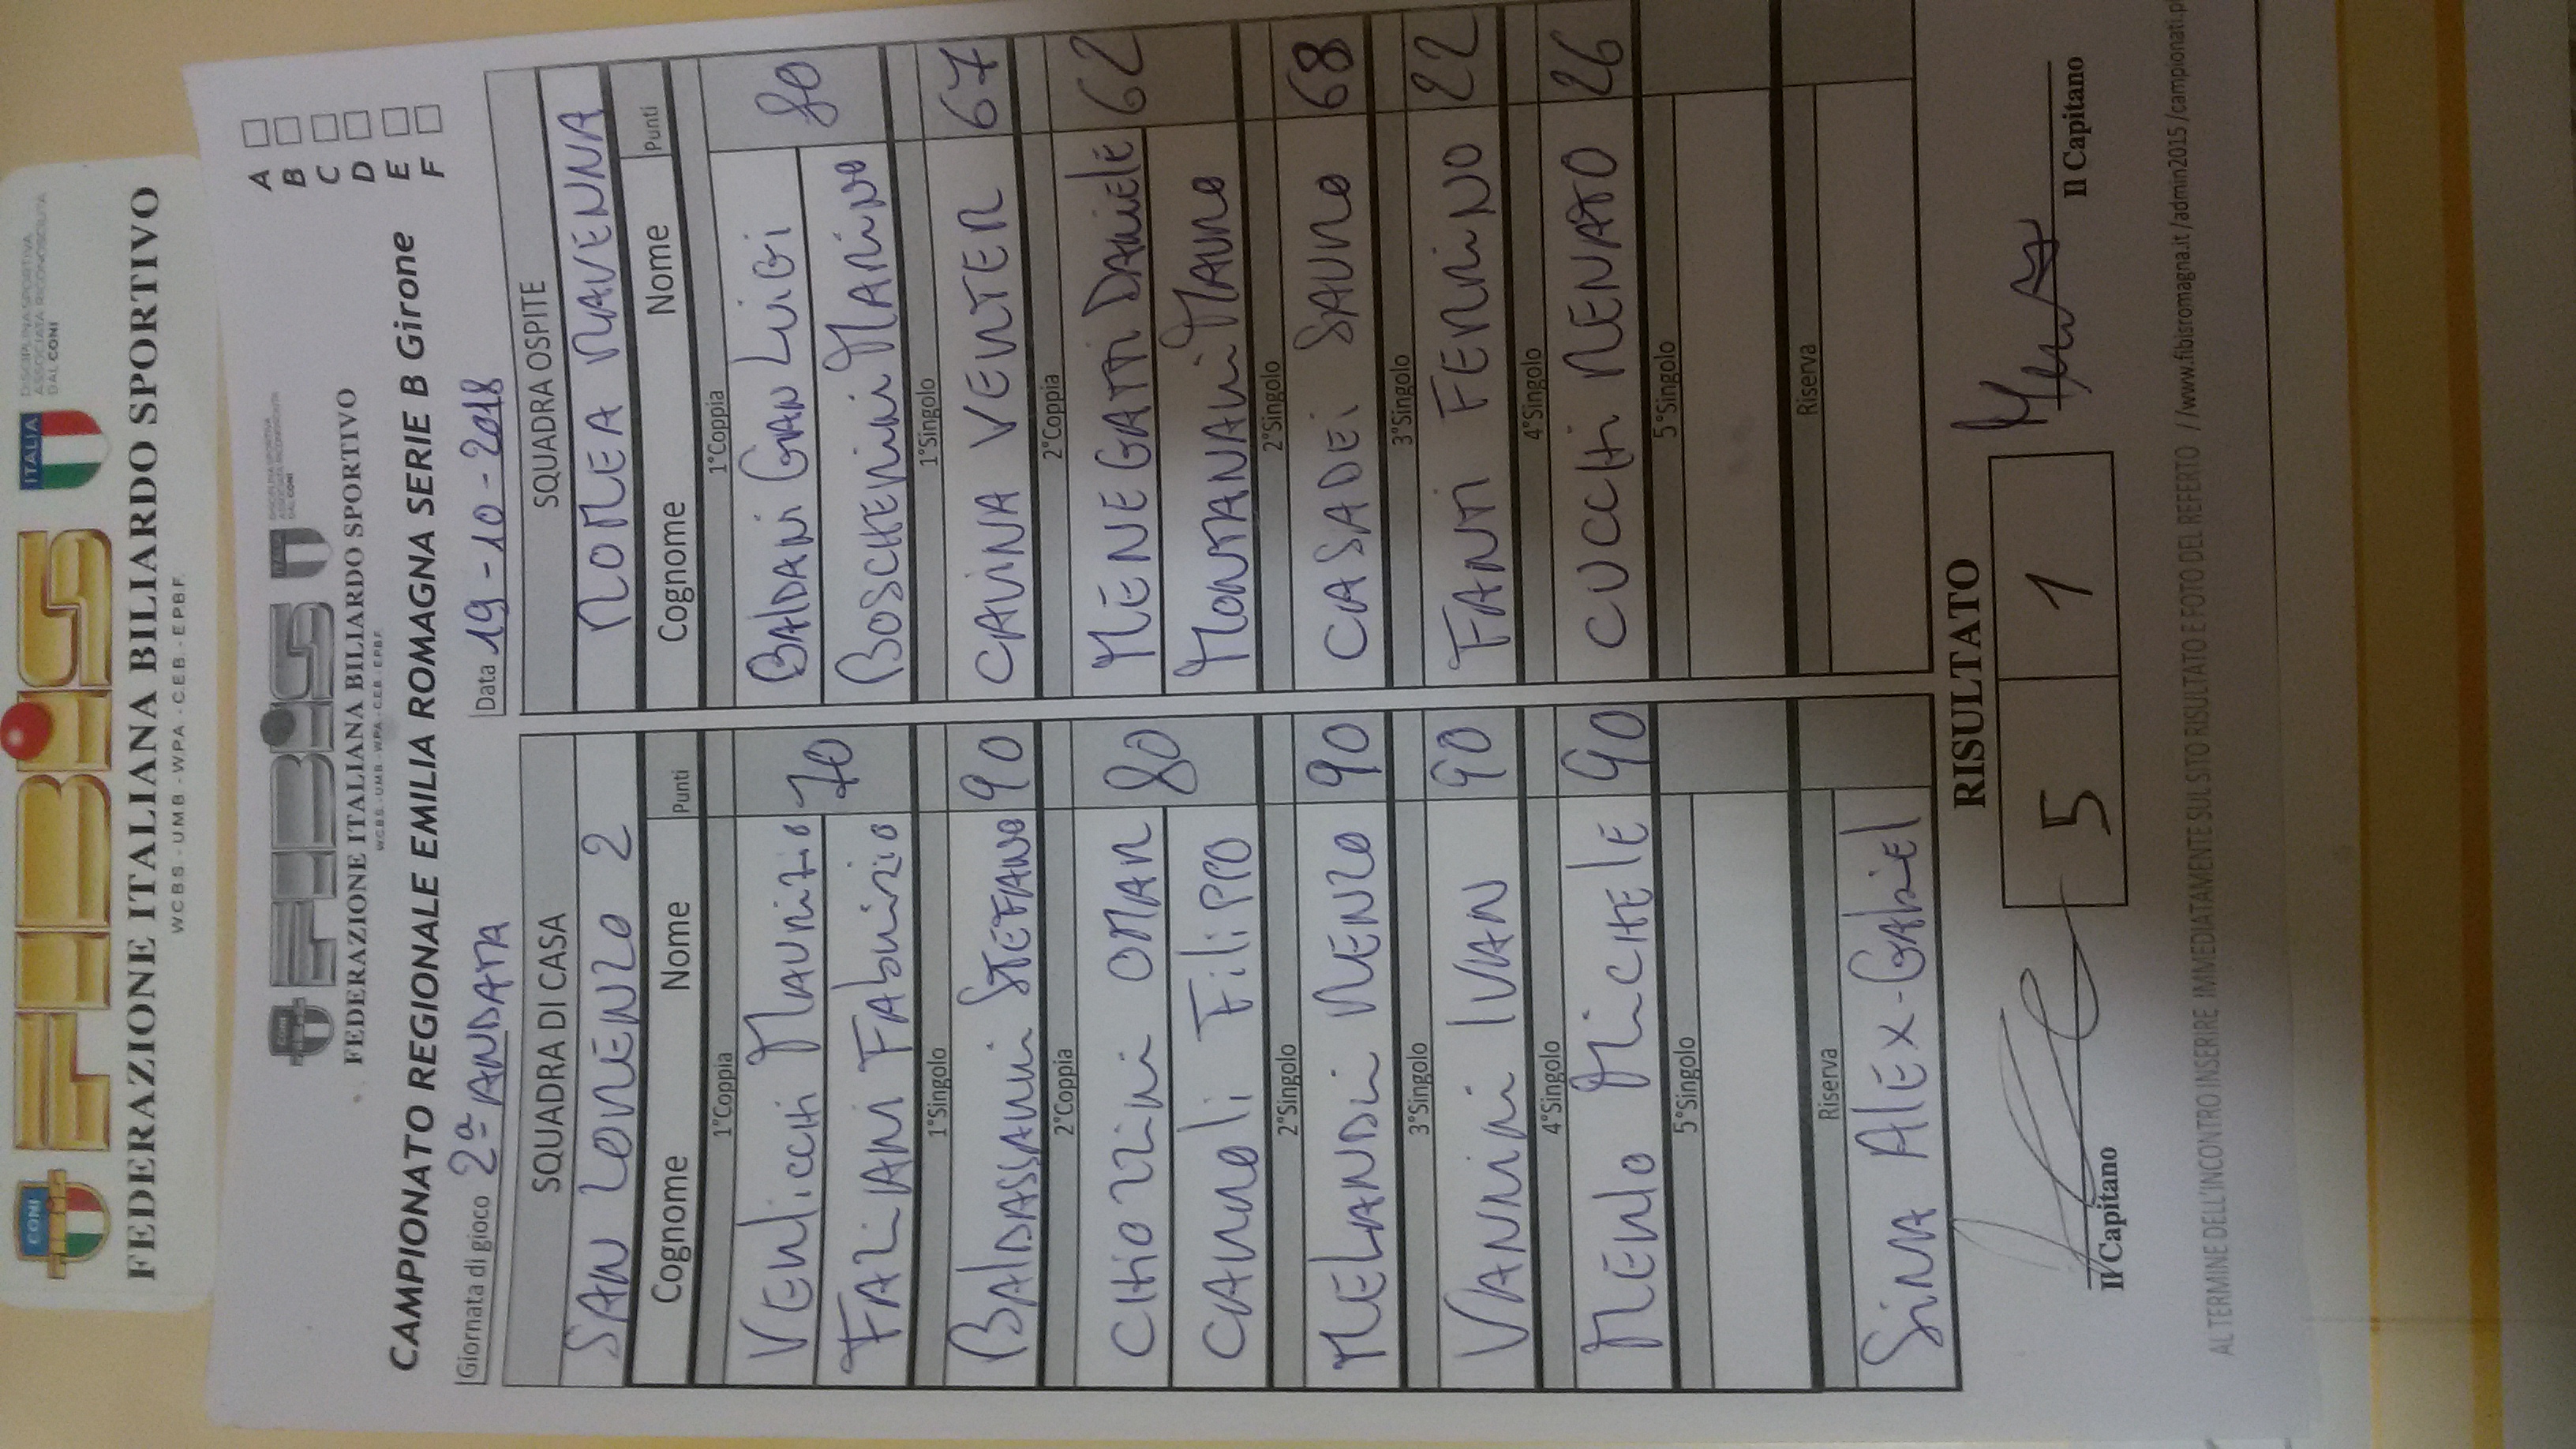 CONI
FEBIS
ITALIA
DISCIPLINA SPORTIVA
ASSOCIATA RICONOSCIUTA
DAL CONI
FEDERAZIONE ITALIANA BILIARDO SPORTIVO
WCBS - UMB - WPA - C.E.B. - E.P.B.F.
CONI
FEBIS
DAL CONI
FEDERAZIONE ITALIANA BILIARDO SPORTIVO
W.C.B.S. - U.M.B. - W.P.A. - C.E.B. - E.P.B.F.
A
B
C
D
E
F
CAMPIONATO REGIONALE EMILIA ROMAGNA SERIE B Girone
Giornata di gioco 2ª ANDATA Data 19-10-2018
SQUADRA DI CASA SQUADRA OSPITE
SAN LORENZO 2 ROMEA RAVENNA
Cognome Nome Punti Cognome Nome Punti
1°Coppia 1°Coppia
VERLICCHI MAURIZIO BALDANI GIAN LUIGI
70 80
FAZIANI FABRIZIO BOSCHERINI MARINO
1°Singolo 1°Singolo
BALDASSARRI STEFANO 90 CAVINA VENTER 67
2°Coppia 2°Coppia
CHIOZZINI OMAR MENEGATTI DANIELE
80 62
CAROLI FILIPPO MONTANARI MAURO
2°Singolo 2°Singolo
MELANDRI RENZO 90 CASADEI SAURO 68
3°Singolo 3°Singolo
VANNINI IVAN 90 FANTI FERRINO 22
4°Singolo 4°Singolo
MERLO MICHELE 90 CUCCHI RENATO 26
5°Singolo 5°Singolo
Riserva Riserva
SINA ALEX-GABRIEL
RISULTATO
5 1
Il Capitano Il Capitano
AL TERMINE DELL'INCONTRO INSERIRE IMMEDIATAMENTE SUL SITO RISULTATO E FOTO DEL REFERTO //www.fibisromagna.it/admin2015/campionati.p